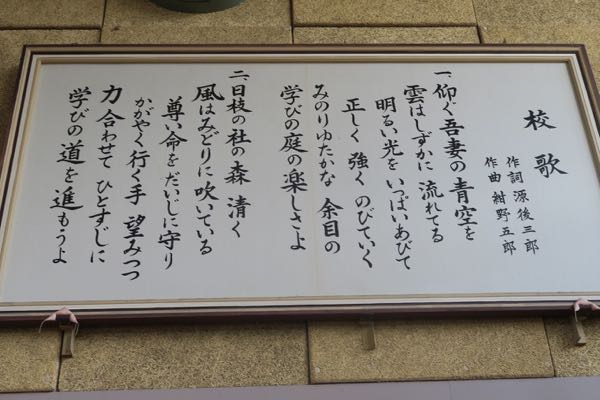 校歌
作詞 源後三郎
作曲 紺野五郎
一、仰ぐ吾妻の青空を
雲はしずかに 流れてる
明るい光を いっぱいあびて
正しく 強く のびていく
みのりゆたかな 余目の
学びの庭の楽しさよ
二、日枝の社の森 清く
風はみどりに吹いている
尊い命をだいじに守り
かがやく行く手 望みつつ
力合わせて ひとすじに
学びの道を進もうよ